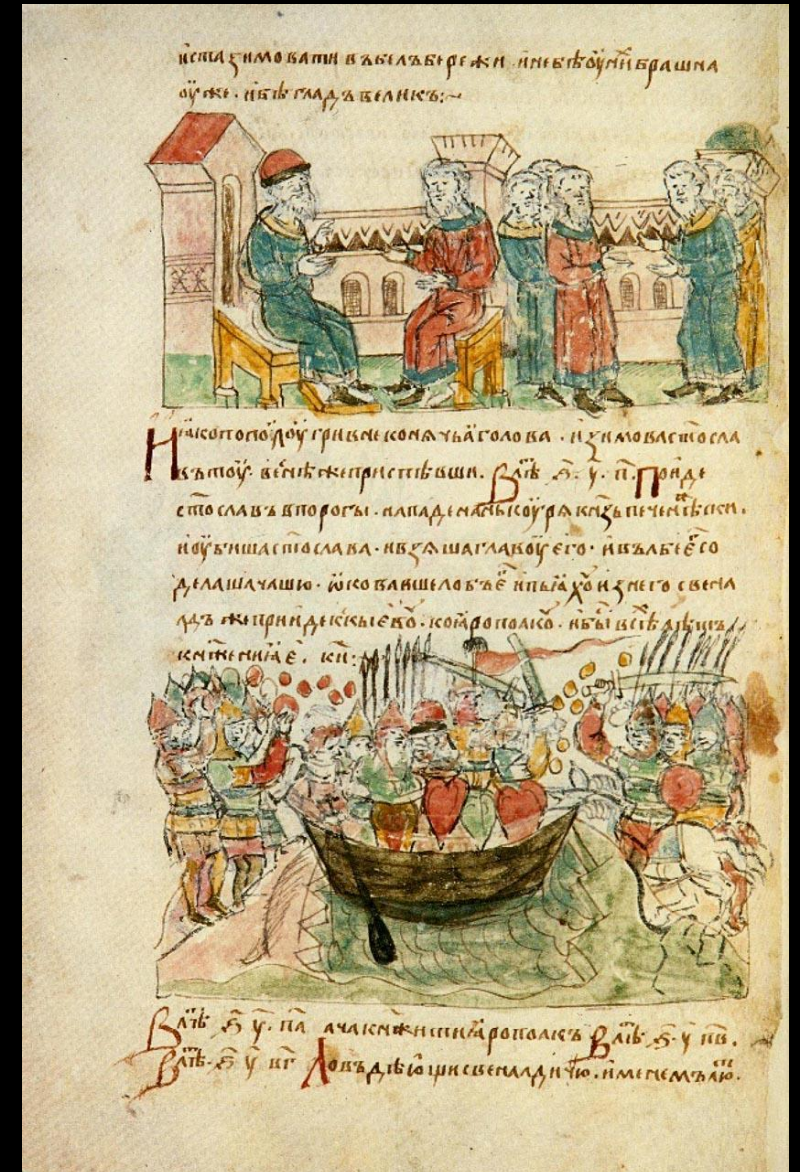 и ста зимовати въ белъбережи . и не бѣ оу ни брашна
оуже . и бѣ гладъ великъ :~
И ꙗко по полоу гривне конѧчьꙗ голова . и зимова стосла
въ тоу . весне же приспѣвши . В лѣ ҂ѕ у п Поиде
стославъ в порогы . и нападе на нь коурѧ кнзь печенѣски .
и оубиша стослава . и взѧша главоу его . и въ лбе е со
делаша чашю . ѡковавше лобъ е и пьꙗхо из него свена
лдъ же прииде к кыевоу . ко ꙗрополкоу . и бы всѣ лѣ
кнѧжениꙗ е . кн :
В лѣ ҂ѕ у па ача кнѧжити ꙗрополкъ В лѣ ҂ѕ у пв .
В лѣ ҂ѕ у пг Ловъ дѣющи свеналдичю . именемъ лю .